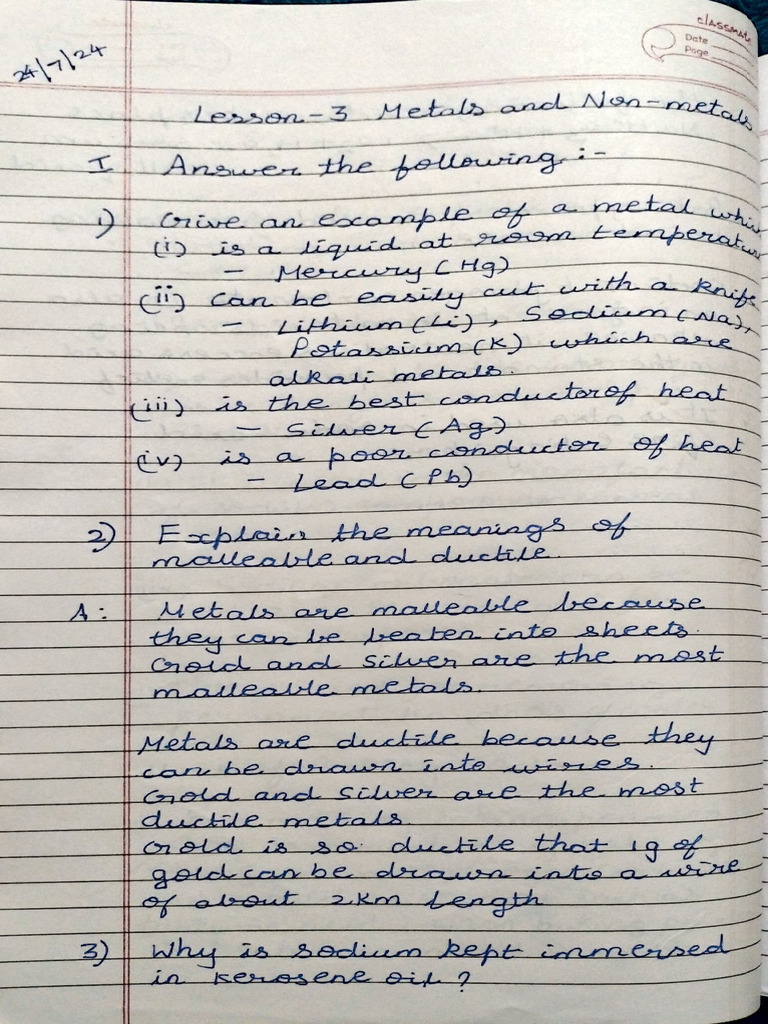 classmate
Date
Page
24/7/24
Lesson-3 Metals and Non-metals
I Answer the following :-
1) Give an example of a metal whi
(i) is a liquid at room temperatu
- Mercury (Hg)
(ii) can be easily cut with a knife
- Lithium (Li), Sodium (Na),
Potassium (K) which are
alkali metals
(iii) is the best conductor of heat
- Silver (Ag)
(iv) is a poor conductor of heat
- Lead (Pb)
2) Explain the meanings of
malleable and ductile.
A: Metals are malleable because
they can be beaten into sheets.
Gold and Silver are the most
malleable metals.
Metals are ductile because they
can be drawn into wires.
Gold and Silver are the most
ductile metals.
Gold is so ductile that 1g of
gold can be drawn into a wire
of about 2km length
3) Why is sodium kept immersed
in kerosene oil ?